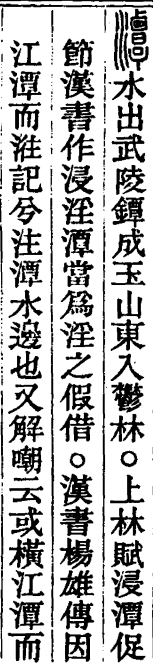 潭水出武陵鐔成玉山東入鬱林○上林賦浸潭促
節漢書作浸淫潭當爲淫之假借○漢書楊雄傳因
江潭而淮記兮注潭水邊也又解嘲云或橫江潭而